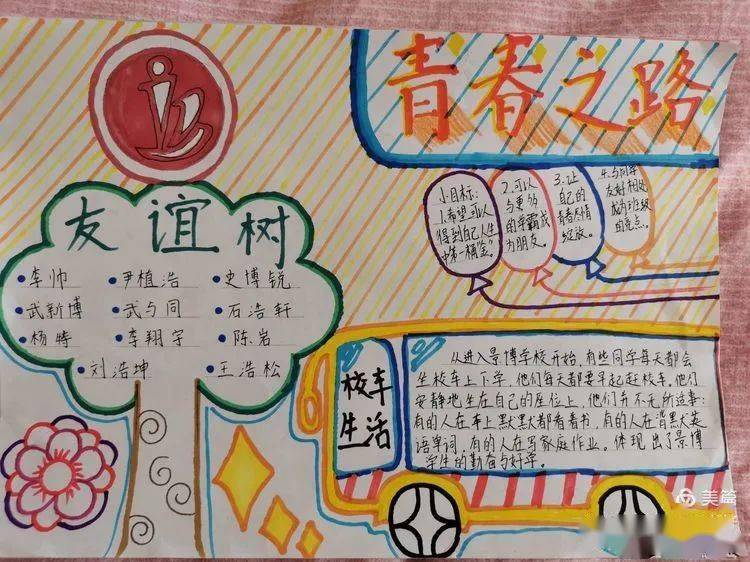 青春之路
小目标:
1.希望可以
得到自己人生
中第一桶"金"。
2.可以
与更多
的学霸成
为朋友。
3.让
自己的
青春尽情
绽放。
4.与同学
友好相处
成为班级
的亮点。
友谊树
李帅 尹植浩 史博锐
武新博 武与同 石浩轩
杨特 李翔宇 陈岩
刘浩坤 王浩松
校车
生活
从进入景博学校开始,有些同学每天都会
坐校车上下学,他们每天都要早起赶校车,他们
安静地坐在自己的座位上,他们并不无所适事:
有的人在车上默默都看着书,有的人在背默大英
语单词,有的人在写家庭作业。体现出了景博
学生的勤奋与好学。
美篇